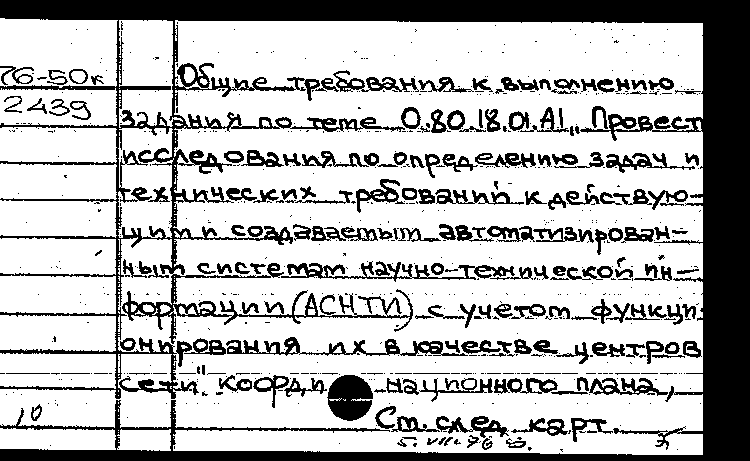 76-50к
2439
Общие требования к выполнению
задания по теме 0.80.18.01.А1 „Провест
исследования по определению задач и
технических требований к действую-
щим и создаваемым автоматизирован-
ным системам научно-технической ин-
формации (АСНТИ) с учетом функци-
онирования их в качестве центров
сети" коорди национного плана,
10
Ст. след. карт.